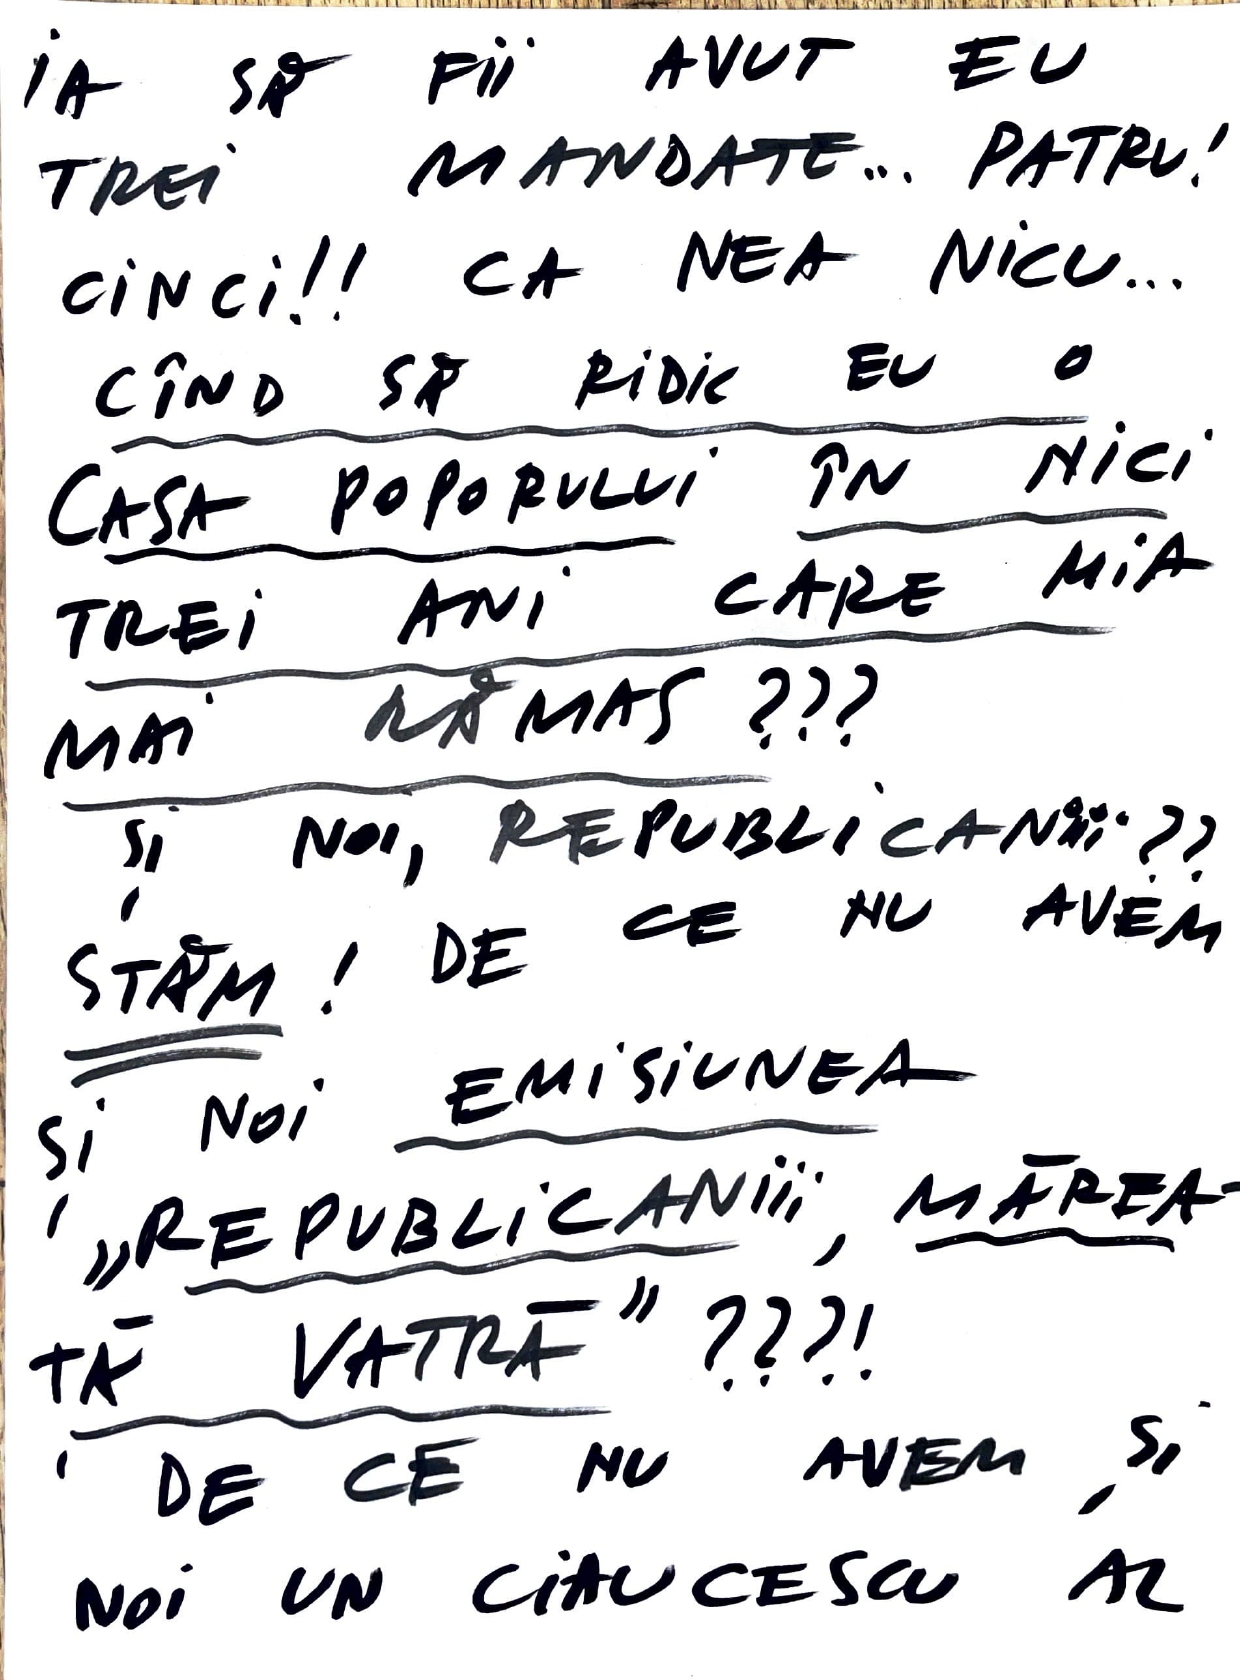 IA SĂ FII AVUT EU
TREI MANDATE... PATRU!
CINCI!! CA NEA NICU...
CÎND SĂ RIDIC EU O
CASA POPORULUI ÎN NICI
TREI ANI CARE MIA
MAI RĂMAS ???
ȘI NOI, REPUBLICANIII ??
STĂM ! DE CE NU AVEM
ȘI NOI EMISIUNEA
„REPUBLICANIII, MĂREA-
ȚĂ VATRĂ” ???!
DE CE NU AVEM ȘI
NOI UN CIAUCESCU AL